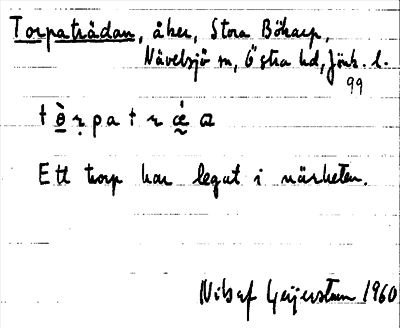 Torpaträdan, åker, Stora Bökarp,
Nävelsjö sn, Östra hd, Jönk. l.
99
Ett torp har legat i närheten.
Nils af Geijerstam 1960